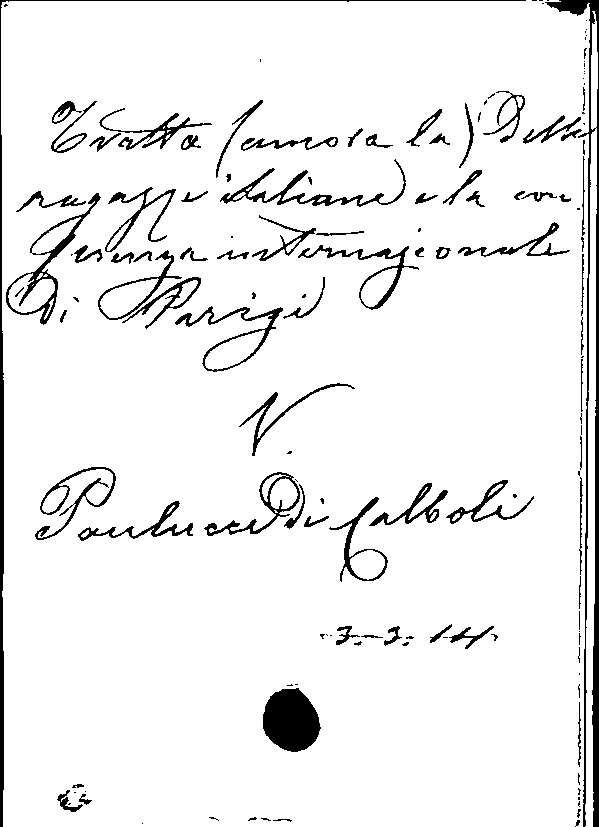 Tratta (ancora la) Delle
ragazze italiane e la con
ferenza internazionale
Di Parigi
V.
Paulucci Di Calboli
3. 3. 14.